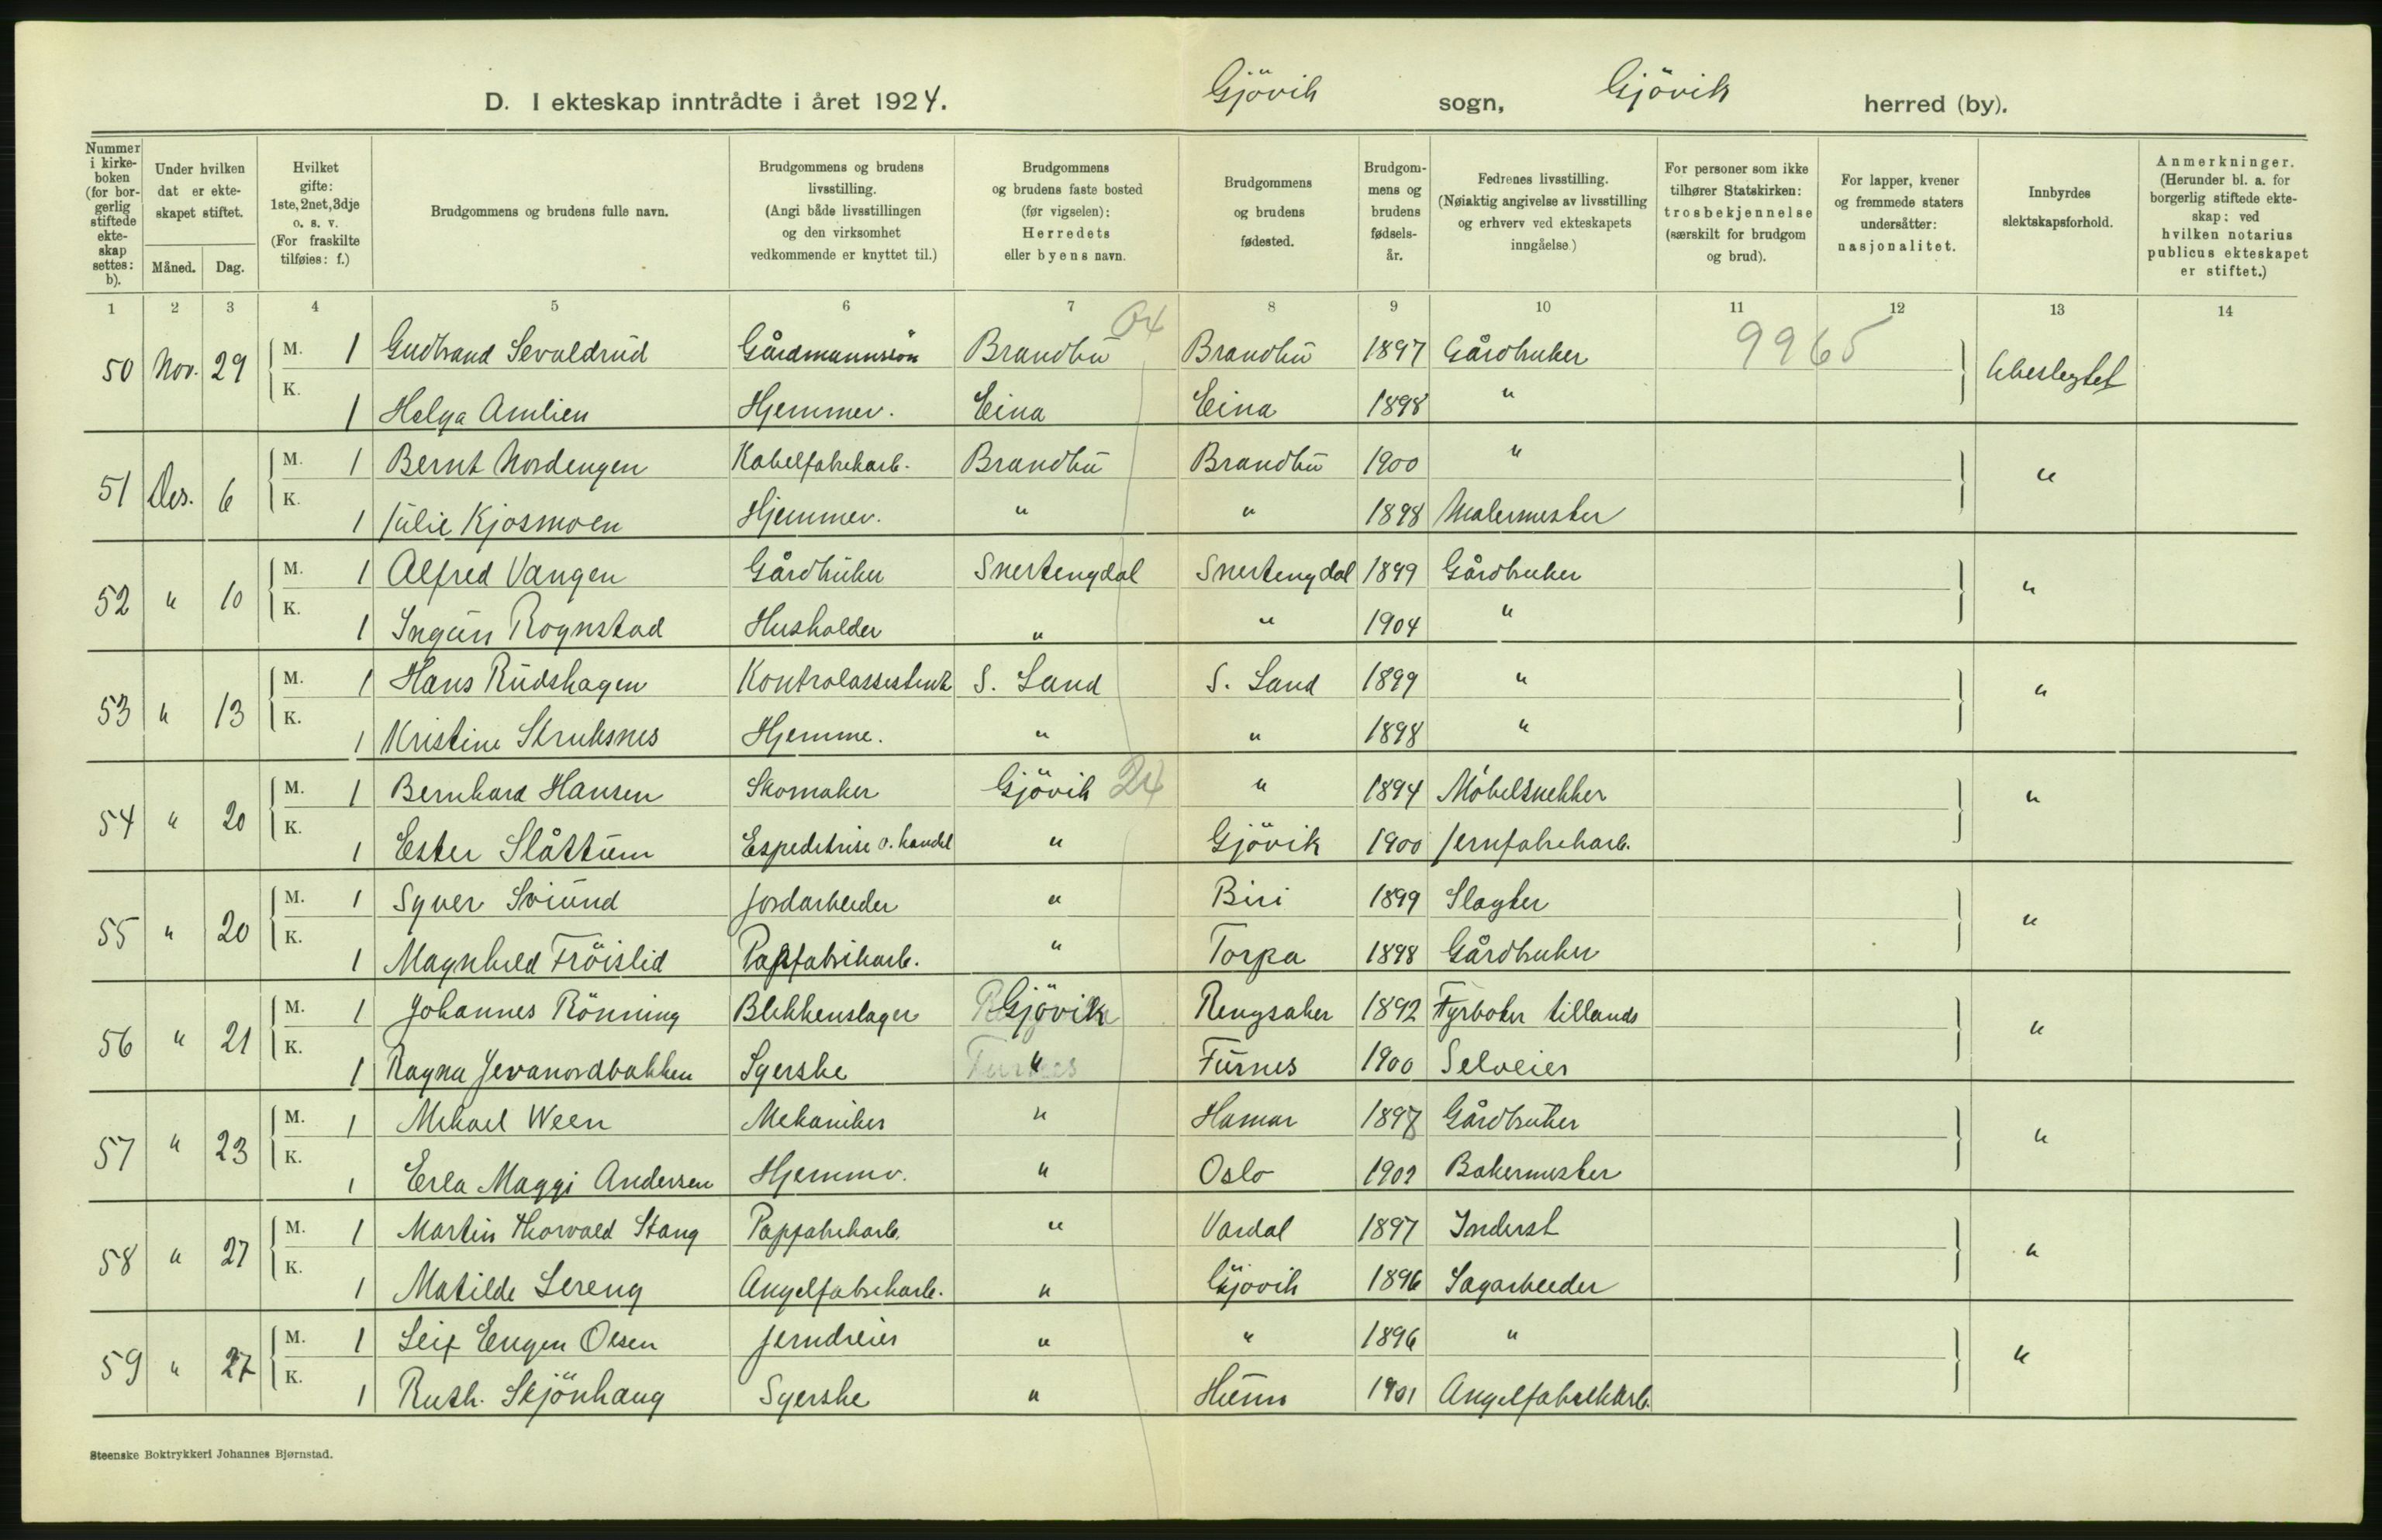 D. I ekteskap inntrådte i året 1924. Gjövik sogn, Gjövik herred (by).
Nummer i kirkeboken (for borgerlig stiftede ekteskap settes: b).
Under hvilken dat er ekteskapet stiftet.
Måned. Dag.
Hvilket gifte: 1ste, 2net, 3dje o. s. v. (For fraskilte tilføies: f.)
Brudgommens og brudens fulle navn.
Brudgommens og brudens livsstilling. (Angi både livsstillingen og den virksomhet vedkommende er knyttet til.)
Brudgommens og brudens faste bosted (før vigselen): Herredets eller byens navn.
Brudgommens og brudens fødested.
Brudgommens og brudens fødselsår.
Fedrenes livsstilling. (Nøiaktig angivelse av livsstilling og erhverv ved ekteskapets inngåelse)
For personer som ikke tilhører Statskirken: trosbekjennelse (særskilt for brudgom og brud).
For lapper, kvener og fremmede staters undersåtter: nasjonalitet.
Innbyrdes slektskapsforhold.
Anmerkninger. (Herunder bl. a. for borgerlig stiftede ekteskap: ved hvilken notarius publicus ekteskapet er stiftet.)
1 2 3 4 5 6 7 8 9 10 11 12 13 14
50 Nov. 29 M. 1 Gudbrand Sevaldrud Gårdmannssön Brandbu Brandbu 1897 Gårdbruker 9965 Ubeslegtet
K. 1 Helga Amlien Hjemmev. Eina Eina 1898 "
51 Des. 6 M. 1 Bernt Nordengen Kabelfabrikarb. Brandbu Brandbu 1900 " "
K. 1 Julie Kjosmoen Hjemmev. " " 1898 Malermester
52 " 10 M. 1 Alfred Vangen Gårdbruker Snertengdal Snertengdal 1899 Gårdbruker "
K. 1 Ingun Rognstad Husholder " " 1904 "
53 " 13 M. 1 Hans Rudshagen Kontrolassistent S. Land S. Land 1899 " "
K. 1 Kristine Struksnes Hjemme. " " 1898 "
54 " 20 M. 1 Bernhard Hansen Skomaker Gjövik 24 " 1894 Möbelsnekker "
K. 1 Ester Slåttum Espeditrise v. handel " Gjövik 1900 Jernfabrikarb.
55 " 20 M. 1 Syver Sviund Jordarbeider " Biri 1899 Slagter "
K. 1 Magnhild Fröislid Papfabrikarb. " Torpa 1898 Gårdbruker
56 " 21 M. 1 Johannes Rönning Blikkenslager Gjövik Ringsaker 1892 Fyrböter tillands "
K. 1 Ragna Jevanordbakken Syerske " Furnes 1900 Selveier
57 " 23 M. 1 Mikael Ween Mekaniker " Hamar 1897 Gårdbruker "
K. 1 Erla Maggi Andersen Hjemmv. " Oslo 1902 Bakermester
58 " 27 M. 1 Martin Thorvald Stang Papfabrikarb. " Vardal 1897 Inderst "
K. 1 Matilde Lereng Angelfabrikarb. " Gjövik 1896 Sagarbeider
59 " 27 M. 1 Leif Eugen Olsen Jerndreier " " 1896 " "
K. 1 Ruth Skjönhaug Syerske " Hunn 1901 Angelfabrikkarb.
Steenske Boktrykkeri Johannes Bjørnstad.